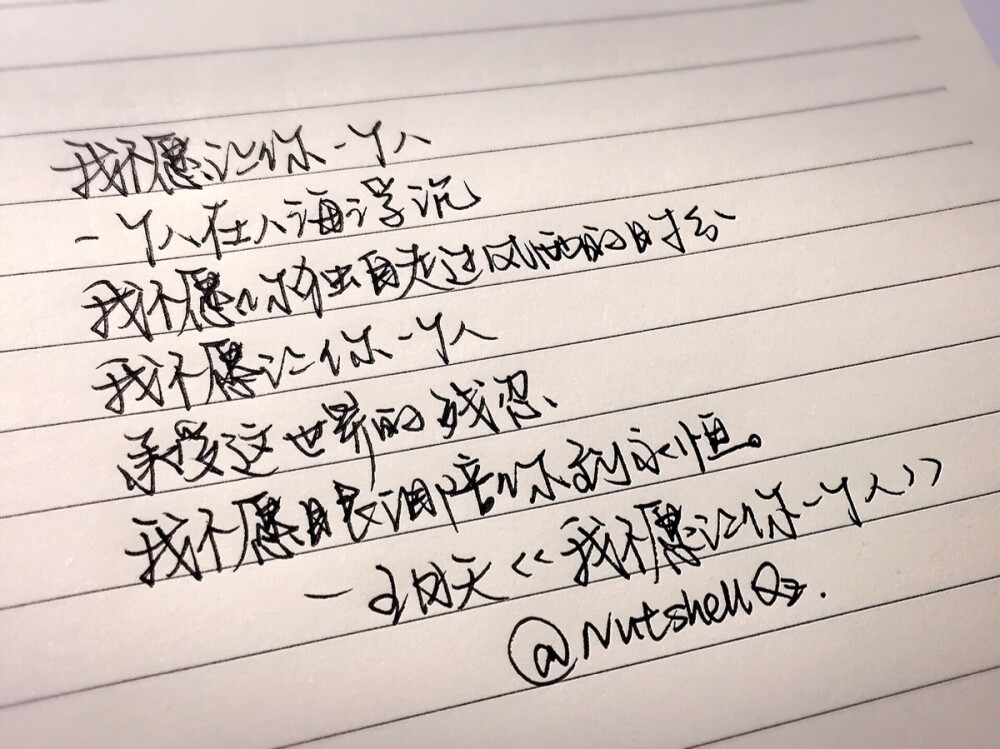 我不愿让你一个人
一个人在人海浮沉
我不愿你独自走过风雨的时分
我不愿让你一个人
承受这世界的残忍、
我不愿眼泪陪你到永恒。
一五月天《我不愿让你一个人》
@Nutshell